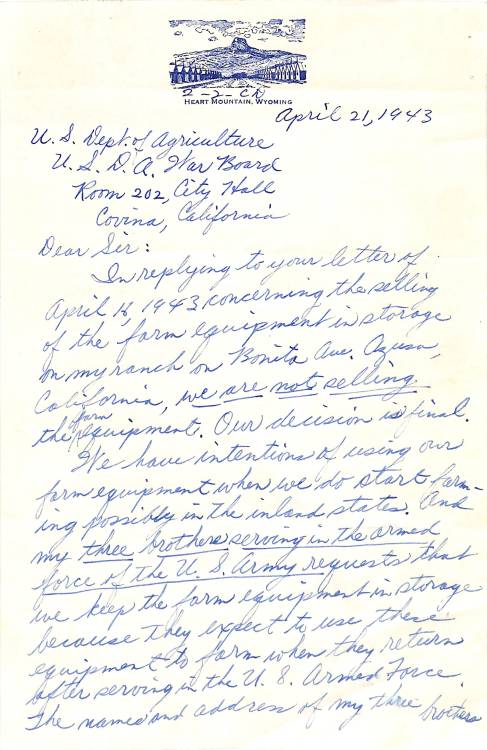 2-2-CD
HEART MOUNTAIN, WYOMING
April 21, 1943
U. S. Dept. of Agriculture
U. S. D. A. War Board
Room 202, City Hall
Covina, California
Dear Sir:
In replying to your letter of
April 16, 1943 concerning the selling
of the farm equipment in storage
on my ranch on Bonita Ave. Azusa,
California, we are not selling
the farm equipment. Our decision is final.
We have intentions of using our
farm equipment when we do start farm-
ing possibly in the inland states. And
my three brothers serving in the armed
force of the U. S. Army requests that
we keep the farm equipment in storage
because they expect to use these
equipment to farm when they return
after serving in the U. S. Armed Force.
The names and address of my three brothers